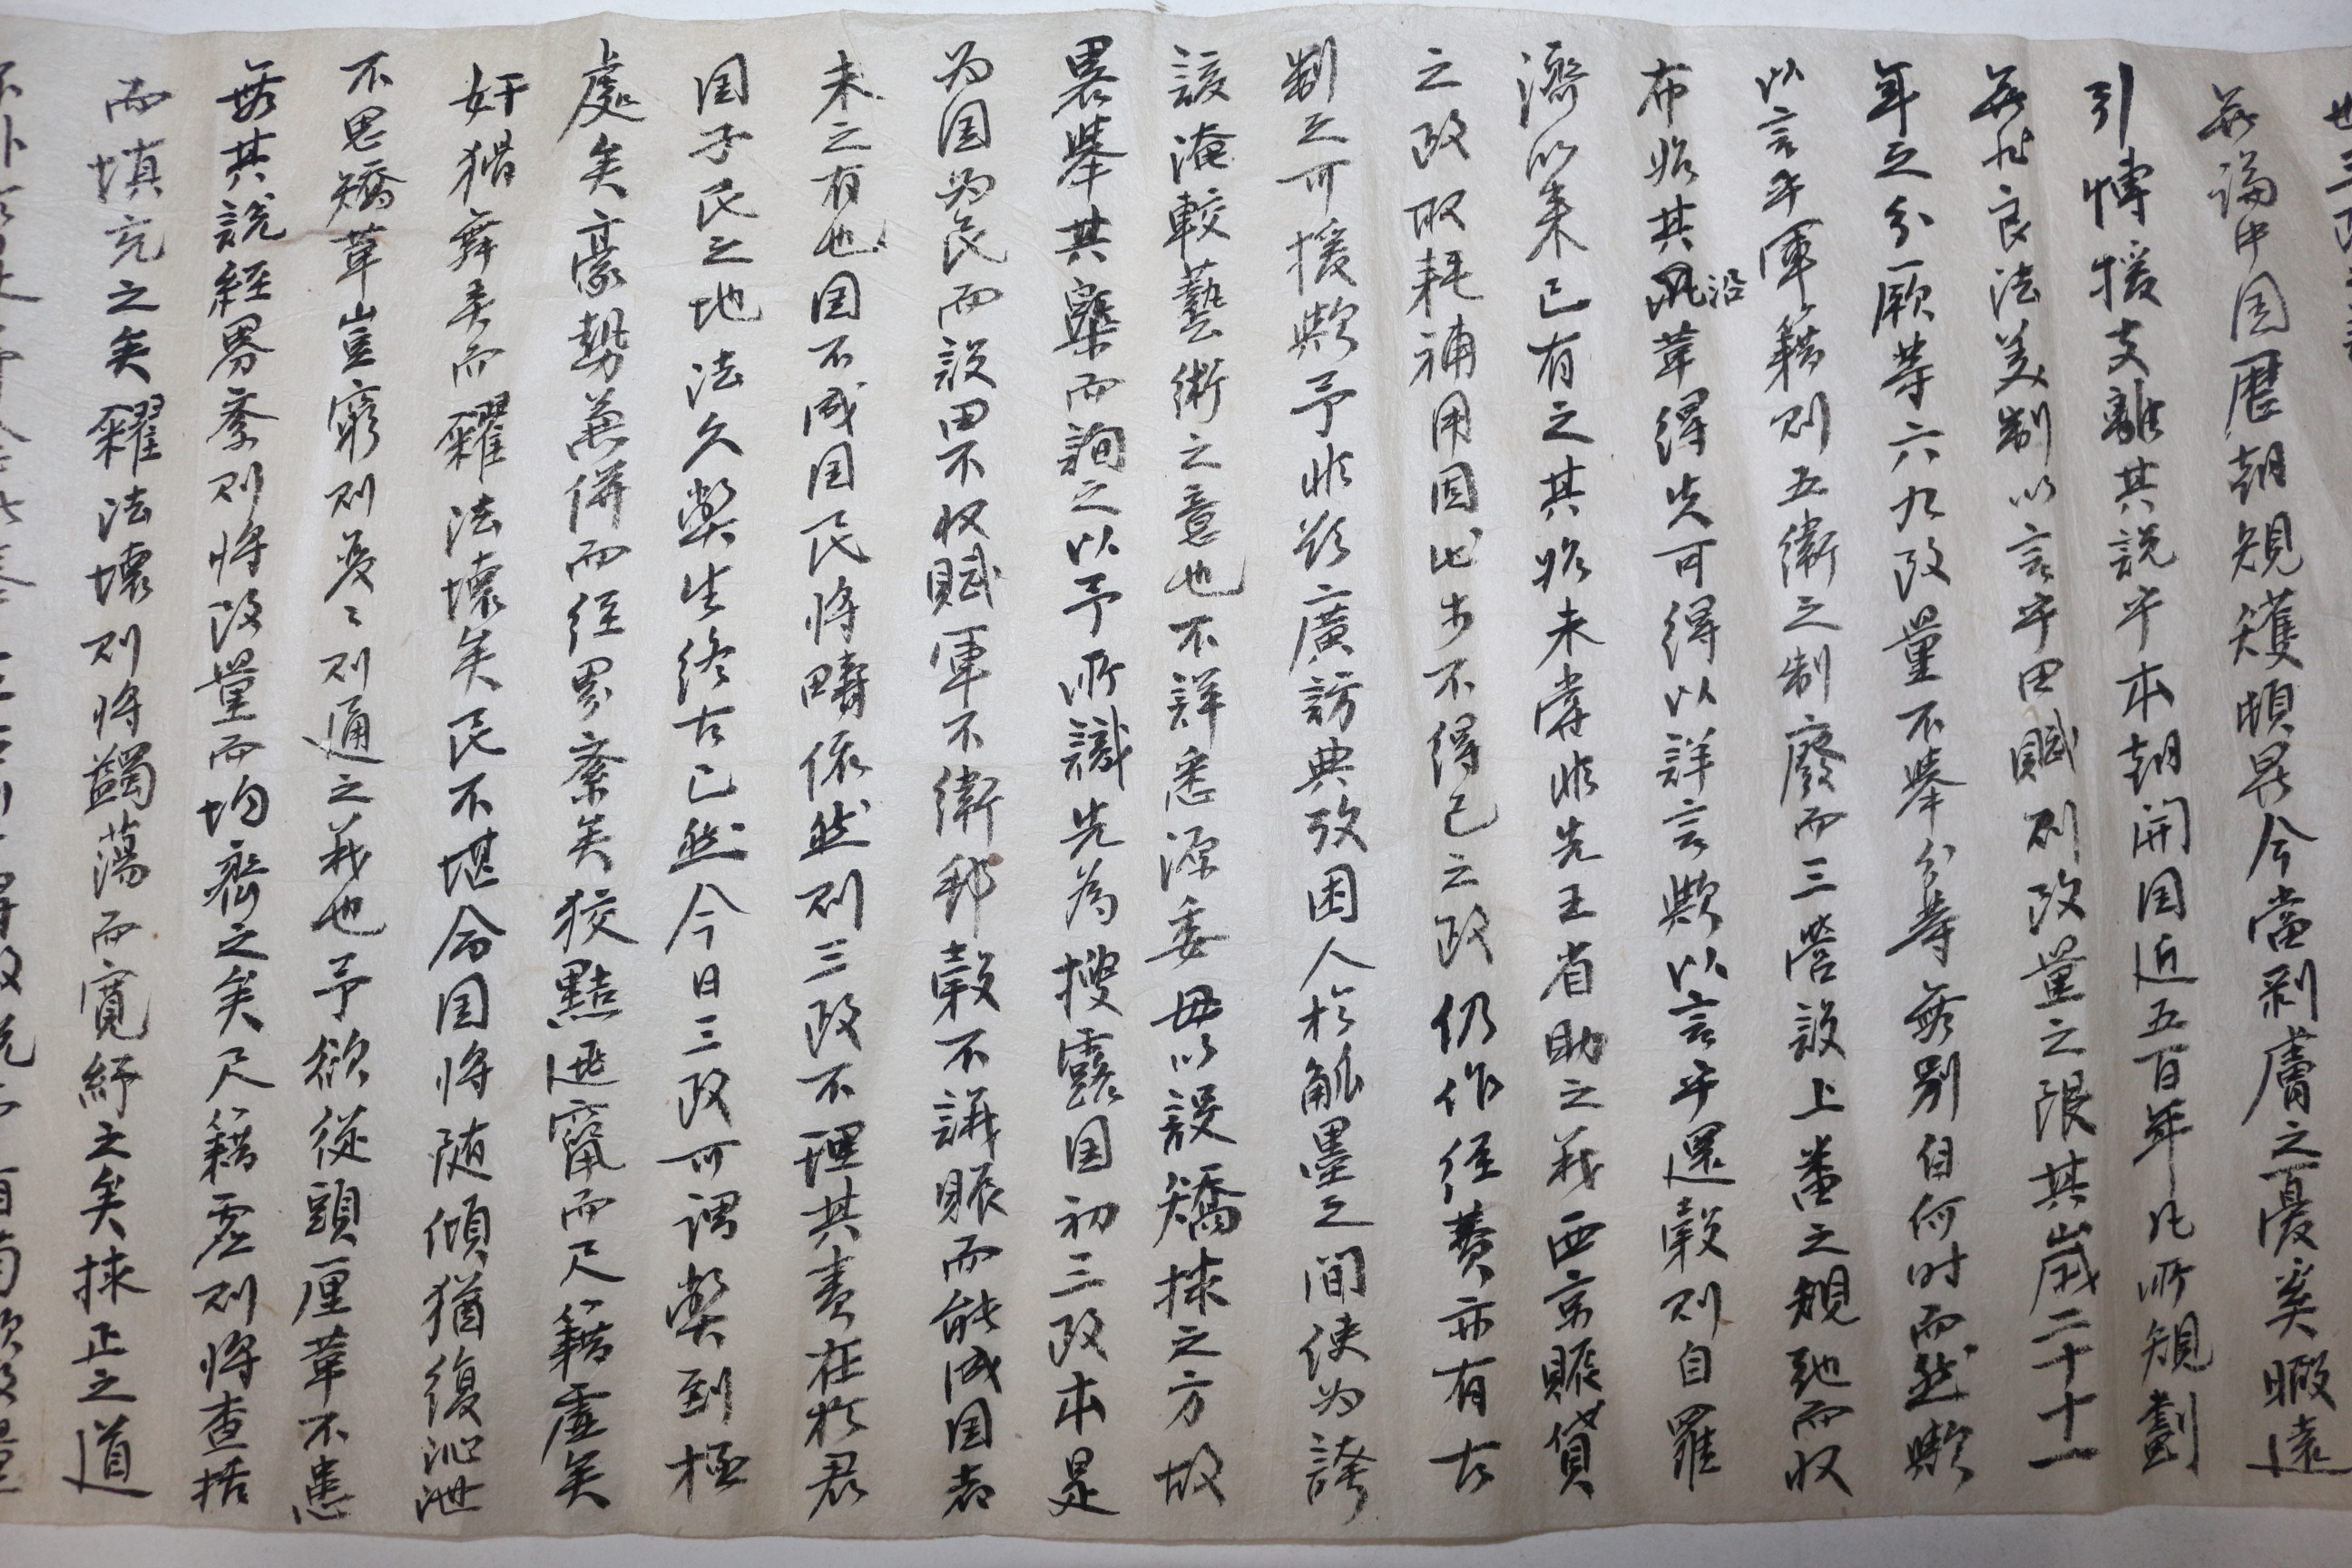 無論中国歷朝規矱頓異今當剥膚之憂奚暇遠
引博援支離其說乎本朝開国近五百年凡所規劃
無非良法美制以言乎田賦則改量之限其歲二十
年之分厥等六九改量不擧分等無別自何时而然歟
以言乎軍籍則五衛之制廢而三營設上番之規弛而收
布始其沿革得失可得以詳言歟以言乎還穀則自羅
濟以来已有之其始未嘗非先王省助之義西京賑貸
之政取耗補用固出於不得已之政仍作经費亦有古
制之可援歟予非欲廣訪典攷困人於觚墨之間使为誇
該淹較藝術之意也不詳悉源委毋以設矯捄之方故
畧擧其槩而詢之以予所識先為搜露国初三政本是
为国为民而設田不收賦軍不衛邦穀不議賑而能成国者
未之有也国不成国民将疇依然則三政不理其責在於君
国子民之地法久獘生终古已然今日三政可謂獘到極
處矣豪勢兼併而经界紊矣狡黠逃竄而尺籍虛矣
奸猾舞弄而糶法壞矣民不堪命国将随傾猶復沁泄
不思矯革豈窮則变〻則通之義也予欲從頭厘革不患
無其說經界紊則将改量而均齊之矣尺籍虛則将查括
而填充之矣糶法壞則将蠲蕩而寬紓之矣捄正之道